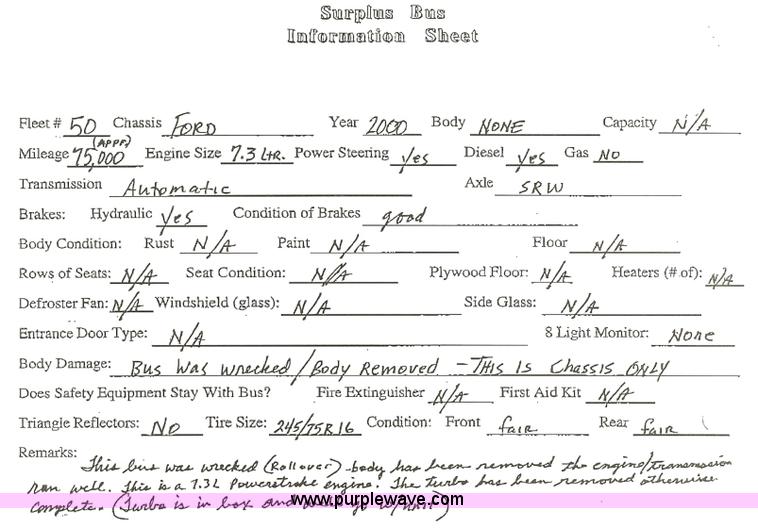 Surplus Bus
Information Sheet
Fleet # 50 Chassis FORD Year 2000 Body NONE Capacity N/A
Mileage 75,000 (APPR) Engine Size 7.3 Ltr. Power Steering yes Diesel yes Gas NO
Transmission Automatic Axle SRW
Brakes: Hydraulic yes Condition of Brakes good
Body Condition: Rust N/A Paint N/A Floor N/A
Rows of Seats: N/A Seat Condition: N/A Plywood Floor: N/A Heaters (# of): N/A
Defroster Fan: N/A Windshield (glass): N/A Side Glass: N/A
Entrance Door Type: N/A 8 Light Monitor: None
Body Damage: Bus was wrecked / Body Removed - THIS IS Chassis ONLY
Does Safety Equipment Stay With Bus? Fire Extinguisher N/A First Aid Kit N/A
Triangle Reflectors: NO Tire Size: 245/75R16 Condition: Front fair Rear fair
Remarks:
This bus was wrecked (Rollover) - body has been removed the engine/transmission
ran well. This is a 7.3L Powerstroke engine. The turbo has been removed otherwise
complete. (Turbo is in box and
www.purplewave.com